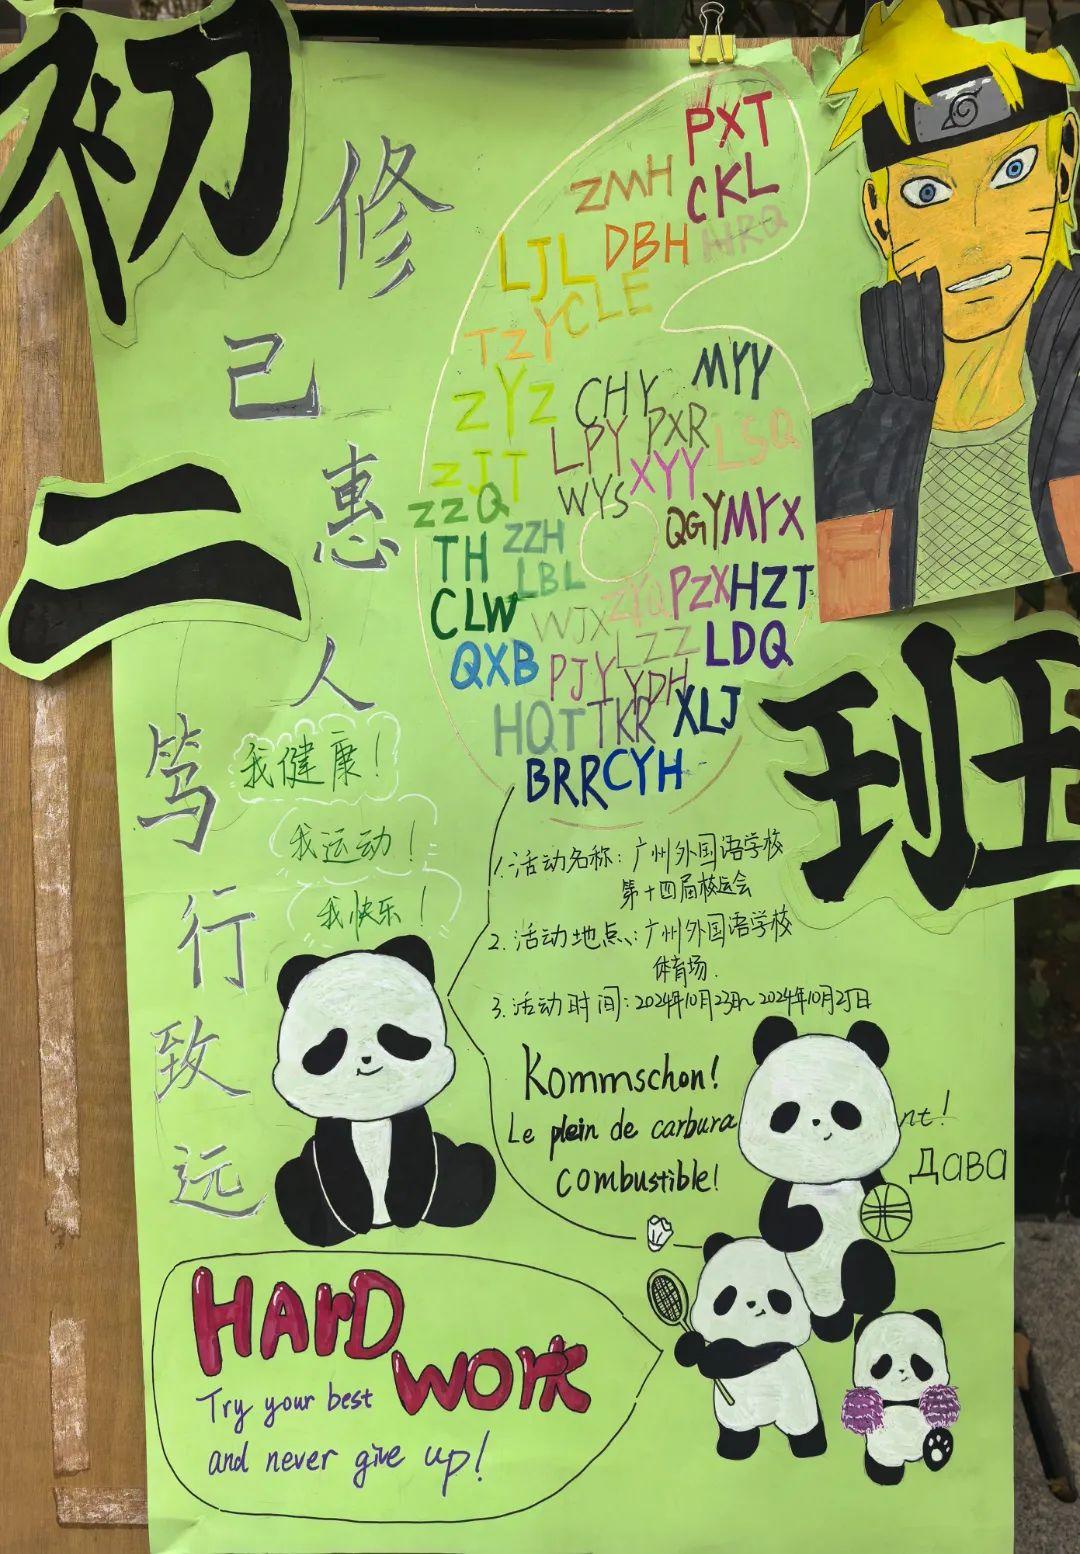 初二班
修己惠人
笃行致远
PXT
ZMH CKL
LJL DBH HRQ
TZY CLE
ZYZ CHY MYY
LPY PXR LSQ
ZJT WYS XYY
ZZQ ZZH QGY MYX
TH LBL ZYQ PZX HZT
CLW WJX LZZ LDQ
QXB PJY YDH
HQT TKR XLJ
BRR CYH
我健康！
我运动！
我快乐！
1.活动名称：广州外国语学校
第十四届校运会
2.活动地点：广州外国语学校
体育场.
3.活动时间：2024年10月23日~2024年10月25日
Kommschon!
Le plein de carbura nt!
combustible!
Дава
HArD
work
Try your best
and never give up!